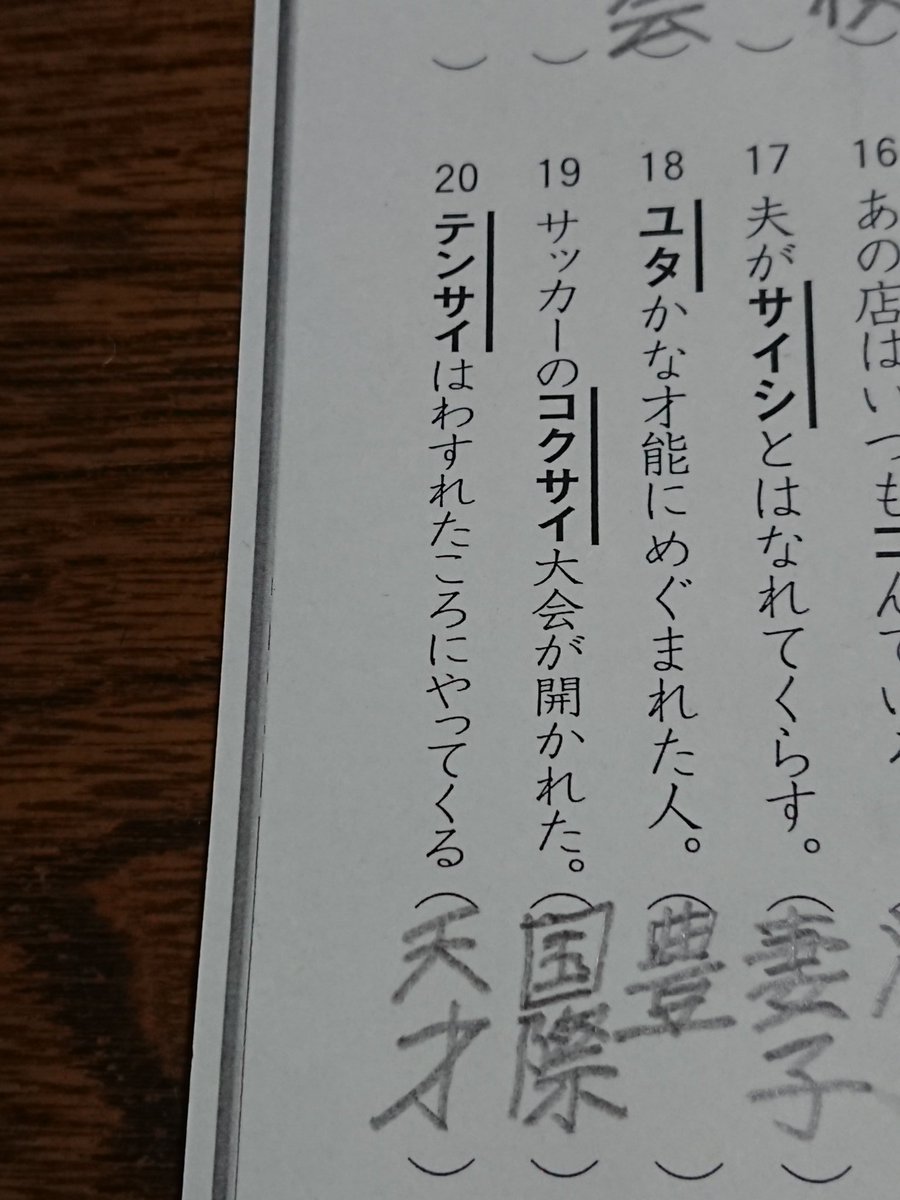 16 あの店はいつもコんでいる
17 夫がサイシとはなれてくらす。(妻子)
18 ユタかな才能にめぐまれた人。(豊)
19 サッカーのコクサイ大会が開かれた。(国際)
20 テンサイはわすれたころにやってくる(天才)
会